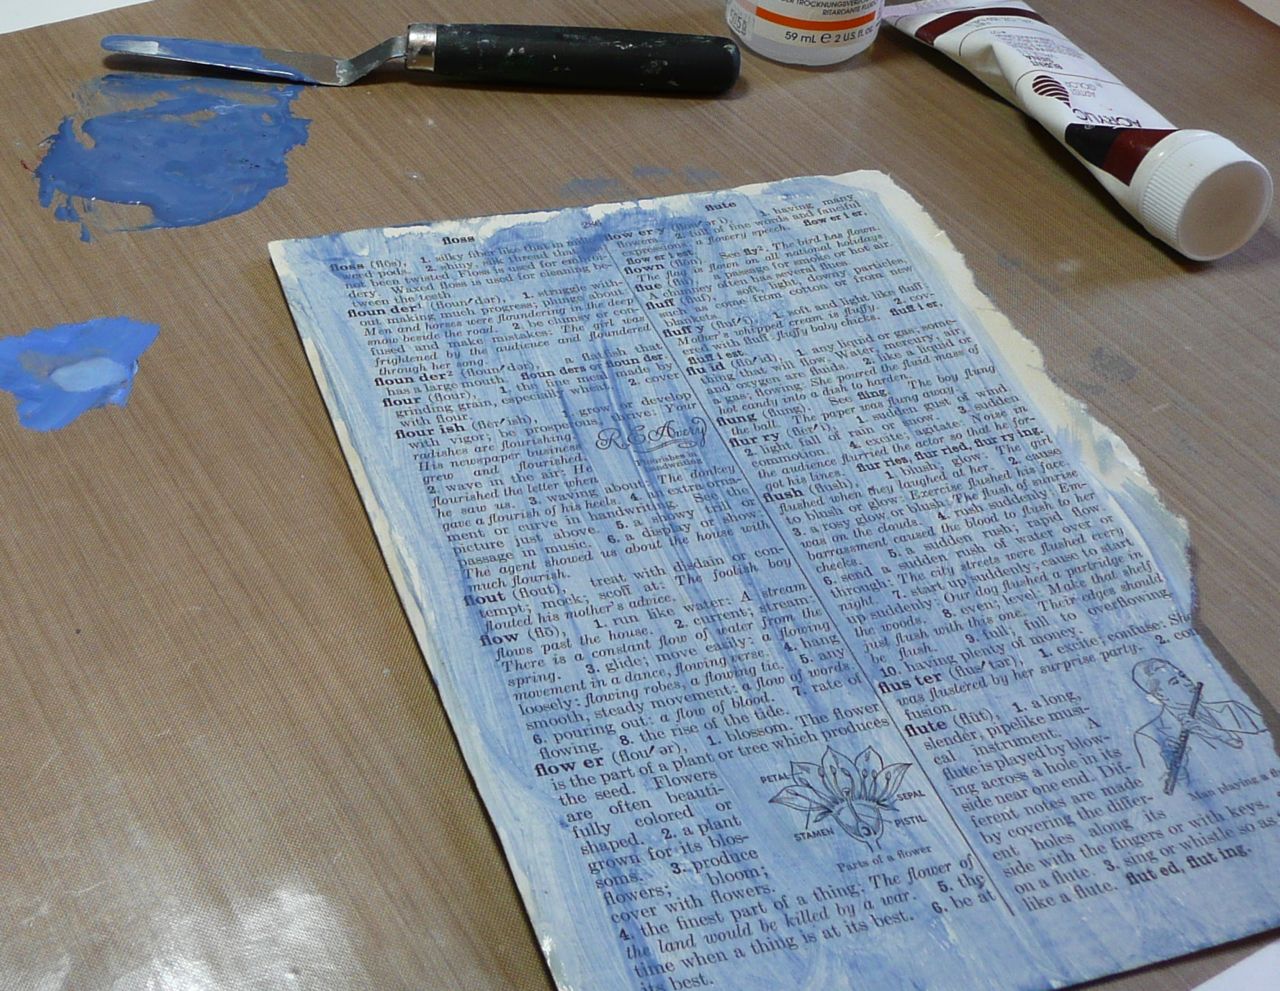 DER TROCKNUNGSVERZÖ
RITARDANTE FLUIDO
59 mL e 2 U.S. fl. oz.
BURNT
SIENNA
ACRYLIC
floss
286
flute
floss (flôs), 1. silky fiber like that in milk-
weed pods. 2. shiny silk thread that has
not been twisted. Floss is used for embroi-
dery. Waxed floss is used for cleaning be-
tween the teeth.
floun der¹ (floun′dər), 1. struggle with-
out making much progress; plunge about:
Men and horses were floundering in the deep
snow beside the road. 2. be clumsy or con-
fused and make mistakes: The girl was
frightened by the audience and floundered
through her song.
floun der² (floun′dər), a flatfish that
has a large mouth. floun ders or floun der.
flour (flour), 1. the fine meal made by
grinding grain, especially wheat. 2. cover
with flour.
flour ish (flėr′ish), 1. grow or develop
with vigor; be prosperous, thrive: Your
radishes are flourishing.
His newspaper business
grew and flourished.
2. wave in the air: He
flourished the letter when
he saw us. 3. waving about: The donkey
gave a flourish of his heels. 4. an extra orna-
ment or curve in handwriting. See the
picture just above. 5. a showy trill or
passage in music. 6. a display or show:
The agent showed us about the house with
much flourish.
Flourishes in
handwriting
flout (flout), treat with disdain or con-
tempt; mock; scoff at: The foolish boy
flouted his mother's advice.
flow (flō), 1. run like water: A stream
flows past the house. 2. current; stream:
There is a constant flow of water from the
spring. 3. glide; move easily: a flowing
movement in a dance, flowing verse. 4. hang
loosely: flowing robes, a flowing tie. 5. any
smooth, steady movement: a flow of words.
6. pouring out: a flow of blood. 7. rate of
flowing. 8. the rise of the tide.
flow er (flou′ər), 1. blossom. The flower
is the part of a plant or tree which produces
the seed. Flowers
are often beauti-
fully colored or
shaped. 2. a plant
grown for its blos-
soms. 3. produce
flowers; bloom;
cover with flowers.
4. the finest part of a thing: The flower of
the land would be killed by a war. 5. the
time when a thing is at its best. 6. be at
its best.
PETAL
SEPAL
STAMEN
PISTIL
Parts of a flower
flow er y 1. having many
flowers. 2. full of fine words and fanciful
expressions: a flowery speech. flow er i er,
flow er i est.
flown (flōn). See fly². The bird has flown.
The flag is flown on all national holidays.
flue (flü), a passage for smoke or hot air.
A chimney often has several flues.
fluff (fluf), soft, light, downy particles,
such as come from cotton or from new
blankets.
fluff y (fluf′i), 1. soft and light like fluff:
Mother's whipped cream is fluffy. 2. cov-
ered with fluff: fluffy baby chicks. fluff i er,
fluff i est.
flu id (flü′id), 1. any liquid or gas; some-
thing that will flow. Water, mercury, air,
and oxygen are fluids. 2. like a liquid or
a gas; flowing: She poured the fluid mass of
hot candy into a dish to harden.
flung (flung). See fling. The boy flung
the ball. The paper was flung away.
flur ry (flėr′i), 1. sudden gust of wind.
2. light fall of rain or snow. 3. sudden
commotion. 4. excite; agitate: Noise in
the audience flurried the actor so that he for-
got his lines. flur ries, flur ried, flur ry ing.
flush (flush), 1. blush; glow: The girl
flushed when they laughed at her. 2. cause
to blush or glow: Exercise flushed his face.
3. a rosy glow or blush: The flush of sunrise
was on the clouds. 4. rush suddenly: Em-
barrassment caused the blood to flush to her
cheeks. 5. a sudden rush; rapid flow.
6. send a sudden rush of water over or
through: The city streets were flushed every
night. 7. start up suddenly; cause to start
up suddenly: Our dog flushed a partridge in
the woods. 8. even; level: Make that shelf
just flush with this one. Their edges should
be flush. 9. full; full to overflowing.
10. having plenty of money.
flus ter (flus′tər), 1. excite; confuse: She
was flustered by her surprise party. 2. con-
fusion.
flute (flüt), 1. a long,
slender, pipelike musi-
cal instrument. A
flute is played by blow-
ing across a hole in its
side near one end. Dif-
ferent notes are made
by covering the differ-
ent holes along its
side with the fingers or with keys.
on a flute. 3. sing or whistle so as
like a flute. flut ed, flut ing.
Man playing a